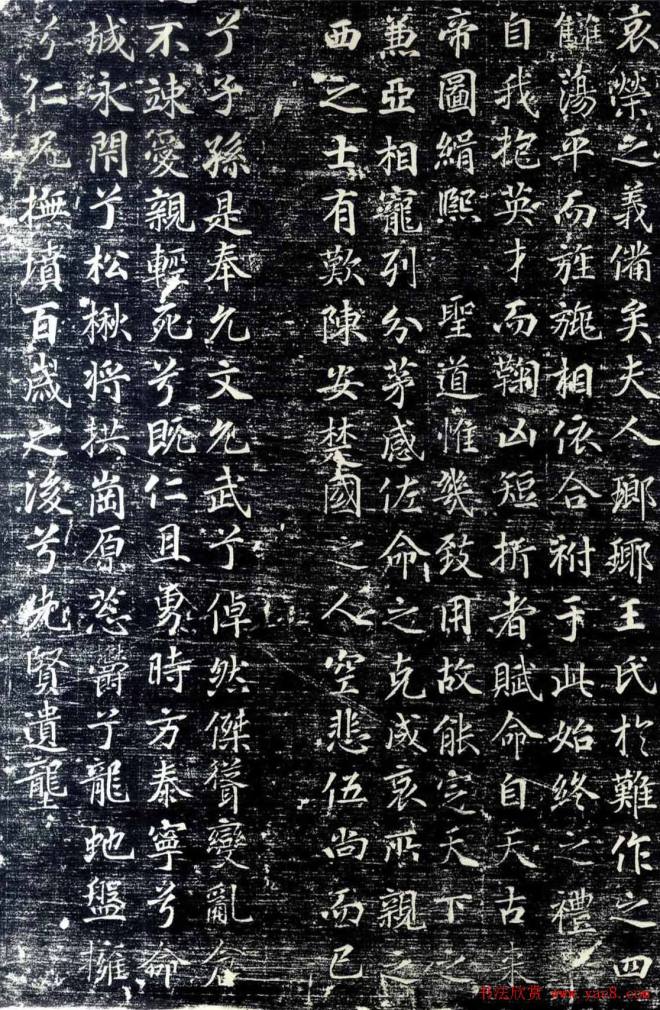 哀榮之義備矣夫人瑯瑘王氏於難作之四
讎蕩平而旌旐相依合祔于此始終之禮
自我抱英才而鞠凶短折者賦命自天古來
帝圖緝熙 聖道惟幾致用故能定天下之
兼亞相寵列分茅感佐命之克咸哀所親之
西之士有歎陳安楚國之人空悲伍尚而已
兮子孫是奉允文允武兮倬然傑聳變亂
不諫愛親輕死兮既仁且勇時方泰寧兮命
城永閇兮松楸將拱崗原葱鬱兮龍虵盤擁
兮仁兄撫墳百歲之後兮先賢遺壠
书法欣赏 www.yac8.com